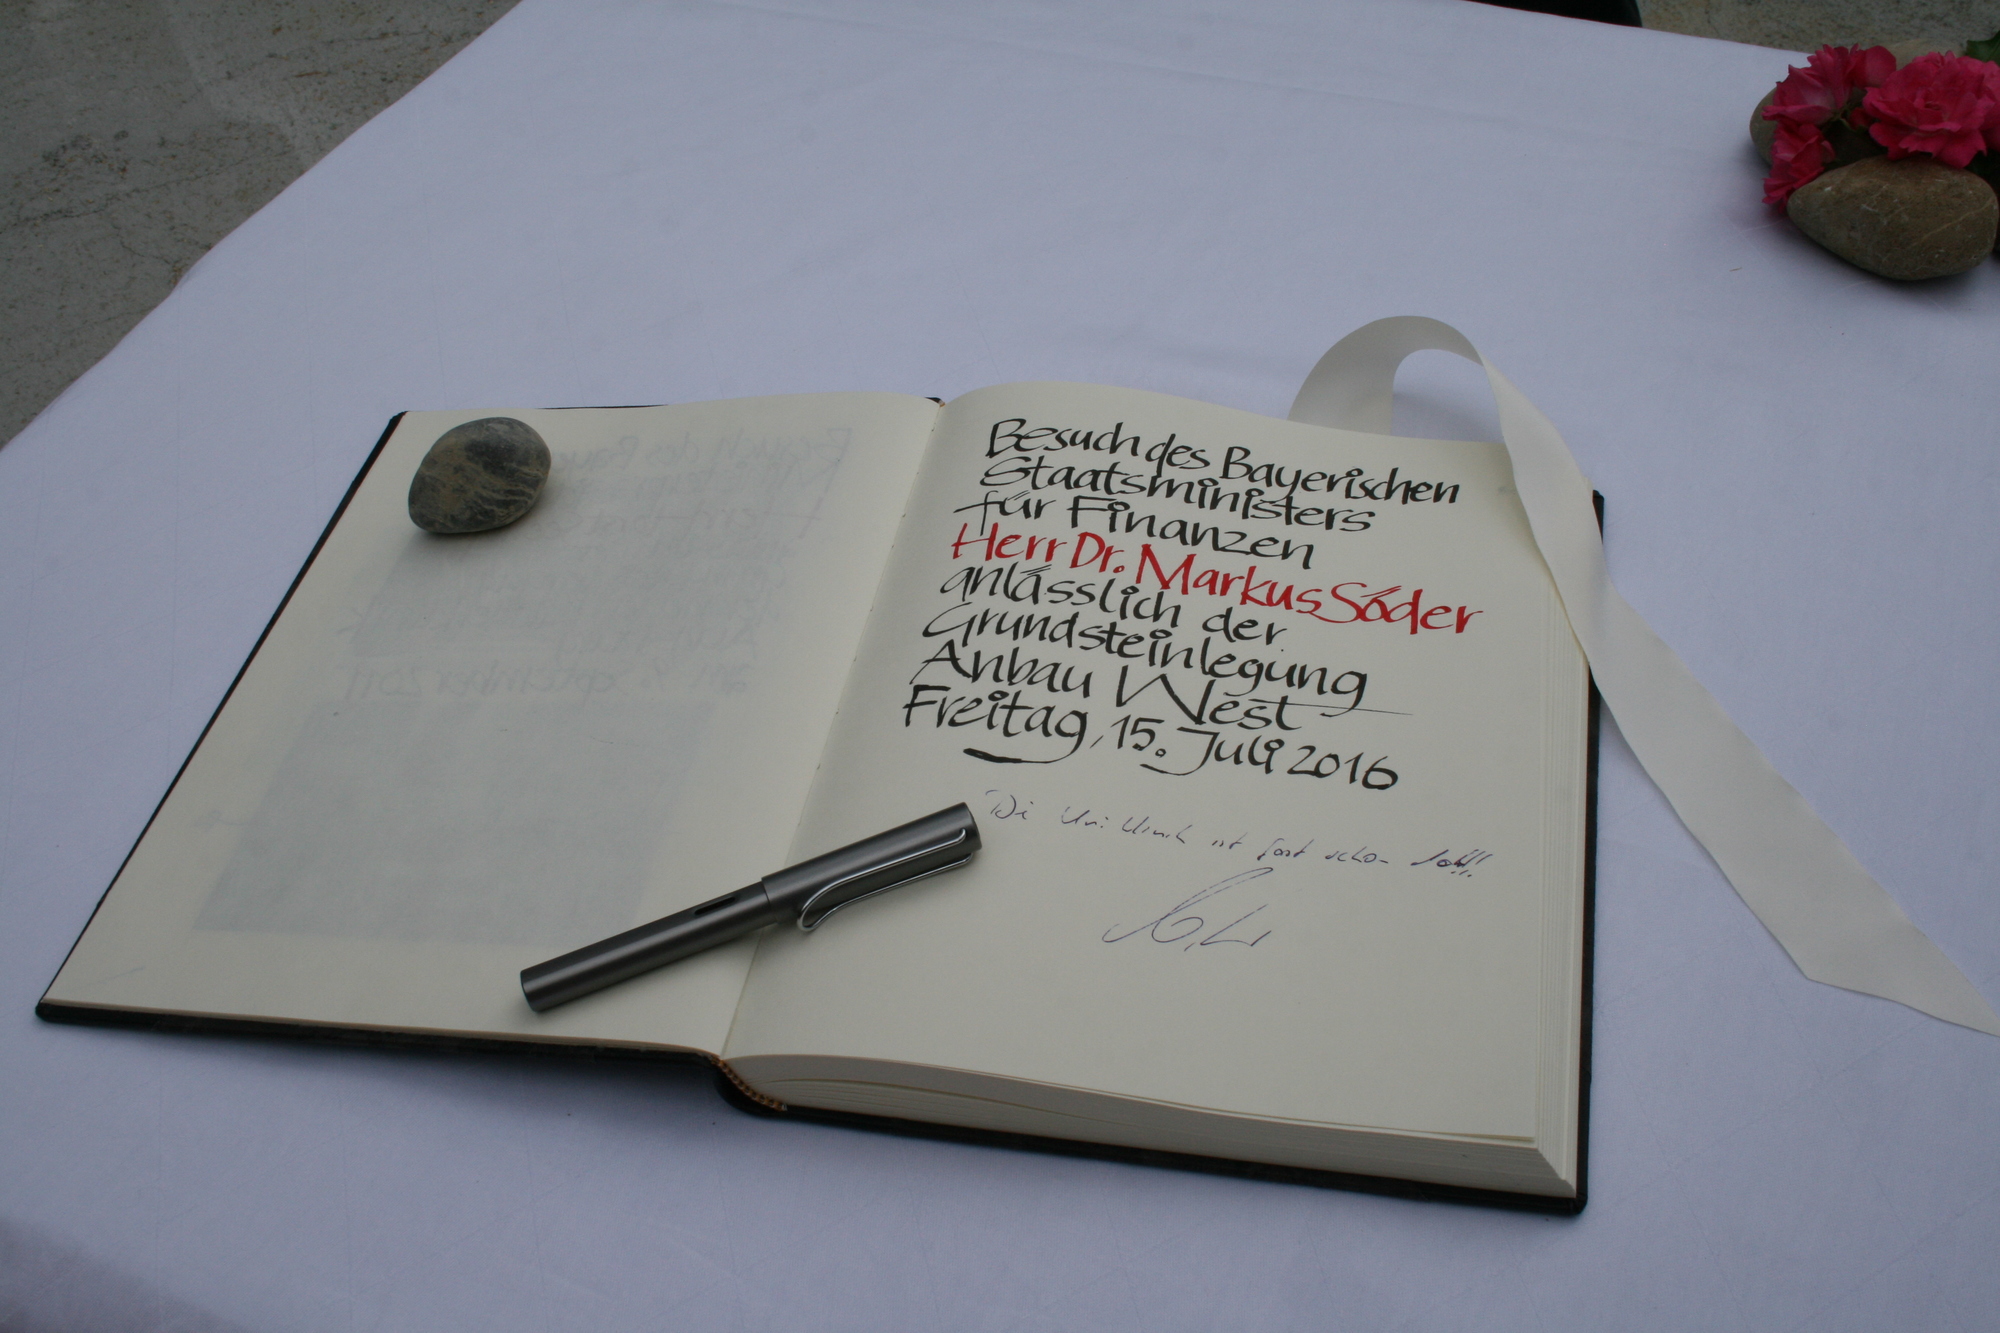 Besuch des Bayerischen
Staatsministers
für Finanzen
Herr Dr. Markus Söder
anlässlich der
Grundsteinlegung
Anbau West
Freitag, 15. Juli 2016
Die Uni Klinik ist fast schon